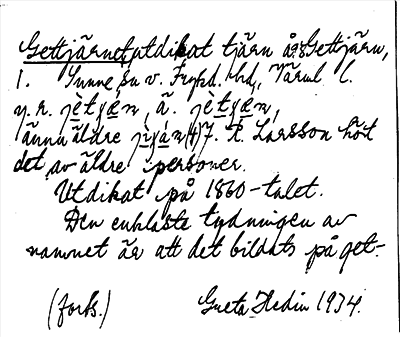 Gettjärnet, utdikat tjärn å 98 Gettjärn,
1. Sunne sn v. Fryksd. hd, Värml. l.
y. r. jètɣæn, ä. jètɣæn,
ännu äldre R. Larsson hört
det av äldre personer.
Utdikat på 1860-talet.
Den enklaste tydningen av
namnet är att det bildats på get-
(forts.) Greta Hedin 1934.